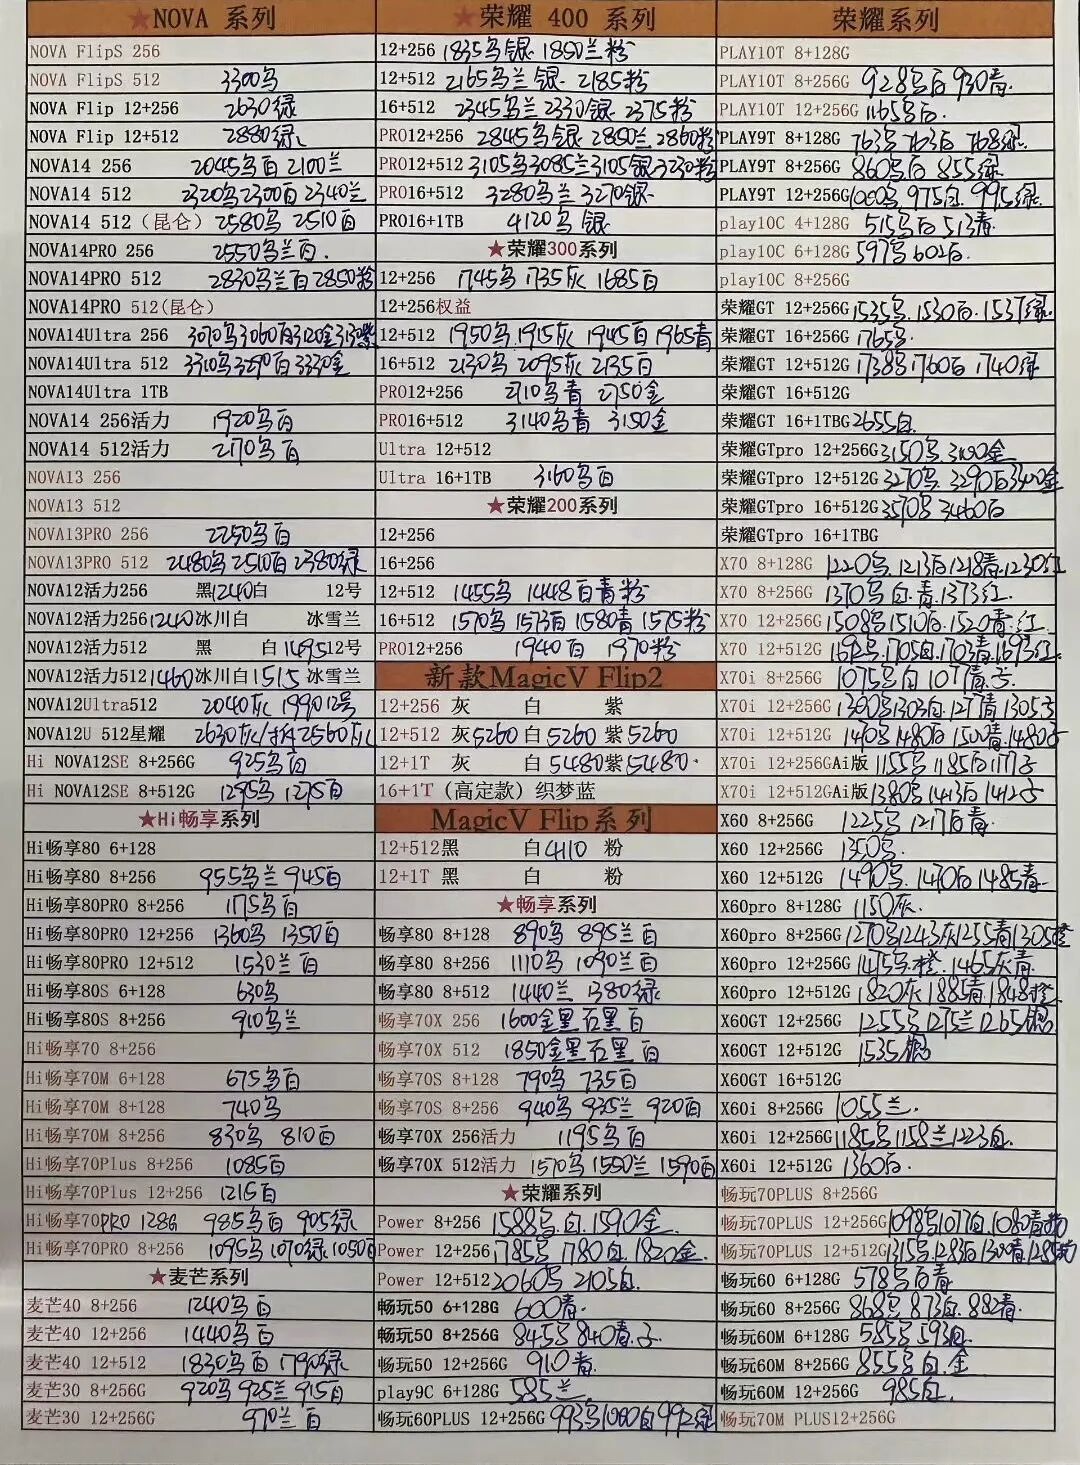 ★NOVA 系列
NOVA FlipS 256
NOVA FlipS 512 3300乌
NOVA Flip 12+256 2630绿
NOVA Flip 12+512 2880绿
NOVA14 256 2045乌白 2100兰
NOVA14 512 2320乌2300白 2340兰
NOVA14 512（昆仑）2580乌 2510白
NOVA14PRO 256 2550乌兰白.
NOVA14PRO 512 2830乌兰白 2850粉
NOVA14PRO 512(昆仑)
NOVA14Ultra 256 3070乌3060白3120金3130紫
NOVA14Ultra 512 3310乌3290白3330金
NOVA14Ultra 1TB
NOVA14 256活力 1920乌白
NOVA14 512活力 2170乌白
NOVA13 256
NOVA13 512
NOVA13PRO 256 2250乌白
NOVA13PRO 512 2480乌 2510白 2380绿
NOVA12活力256 黑1240白 12号
NOVA12活力256 1240冰川白 冰雪兰
NOVA12活力512 黑 白1495 12号
NOVA12活力512 1460冰川白1515冰雪兰
NOVA12Ultra512 2040灰 1990 12号
NOVA12U 512星耀 2630灰/拆2560灰
Hi NOVA12SE 8+256G 925乌白
Hi NOVA12SE 8+512G 1295乌 1275白
★Hi畅享系列
Hi畅享80 6+128
Hi畅享80 8+256 955乌兰 945白
Hi畅享80PRO 8+256 1175乌白
Hi畅享80PRO 12+256 1360乌 1350白
Hi畅享80PRO 12+512 1530兰白
Hi畅享80S 6+128 630乌
Hi畅享80S 8+256 910乌兰
Hi畅享70 8+256
Hi畅享70M 6+128 675乌白
Hi畅享70M 8+128 740乌
Hi畅享70M 8+256 830乌 810白
Hi畅享70Plus 8+256 1085白
Hi畅享70Plus 12+256 1215白
Hi畅享70PRO 128G 985乌白 905绿
Hi畅享70PRO 8+256 1095乌 1070绿 1050白
★麦芒系列
麦芒40 8+256 1240乌白
麦芒40 12+256 1440乌白
麦芒40 12+512 1830乌白 1790绿
麦芒30 8+256G 920乌 925兰 915白
麦芒30 12+256G 970兰白
★荣耀 400 系列
12+256 1835乌银. 1850兰粉
12+512 2165乌兰银. 2185粉
16+512 2345乌兰 2330银. 2375粉
PRO12+256 2845乌银 2850兰 2860粉
PRO12+512 3105乌3085兰3105银3230粉
PRO16+512 3280乌兰 3270银.
PRO16+1TB 4120乌银
★荣耀300系列
12+256 1745乌 1735灰 1685白
12+256权益
12+512 1950乌.1915灰 1945白 1965青
16+512 2130乌 2095灰 2135白
PRO12+256 2710乌青 2750金
PRO16+512 3140乌青 3150金
Ultra 12+512
Ultra 16+1TB 3160乌白
★荣耀200系列
12+256
16+256
12+512 1455乌 1448白青粉
16+512 1570乌 1573白 1580青 1575粉
PRO12+256 1940白 1970粉
新款MagicV Flip2
12+256 灰 白 紫
12+512 灰5260 白5260 紫5260
12+1T 灰 白5480紫5480.
16+1T（高定款）织梦蓝
MagicV Flip系列
12+512黑 白4110 粉
12+1T 黑 白 粉
★畅享系列
畅享80 8+128 890乌 895兰白
畅享80 8+256 1110乌 1090兰白
畅享80 8+512 1440兰 1380绿
畅享70X 256 1600金黑石黑白
畅享70X 512 1850金黑石黑白
畅享70S 8+128 790乌 735白
畅享70S 8+256 940乌 935兰 920白
畅享70X 256活力 1195乌白
畅享70X 512活力 1570乌 1550兰 1590白
★荣耀系列
Power 8+256 1588乌.白.1590金.
Power 12+256 1785乌 1780白.1820金.
Power 12+512 2060乌 2105白.
畅玩50 6+128G 600青.
畅玩50 8+256G 845乌 840青.
畅玩50 12+256G 910青.
play9C 6+128G 585兰.
畅玩60PLUS 12+256G 993乌1000白992绿
荣耀系列
PLAY10T 8+128G
PLAY10T 8+256G 928乌白 930青.
PLAY10T 12+256G 1165乌白.
PLAY9T 8+128G 763乌 763白 768绿.
PLAY9T 8+256G 860乌白 855绿
PLAY9T 12+256G 1000乌 975白. 995绿.
play10C 4+128G 515乌白 513青.
play10C 6+128G 597乌 602白.
play10C 8+256G
荣耀GT 12+256G 1535乌.1530白.1537绿.
荣耀GT 16+256G 1765乌.
荣耀GT 12+512G 1738乌 1760白 1740绿
荣耀GT 16+512G
荣耀GT 16+1TBG 2655白.
荣耀GTpro 12+256G 3150乌.3100金
荣耀GTpro 12+512G 3270乌. 3290白3400金
荣耀GTpro 16+512G 3570乌 3460白
荣耀GTpro 16+1TBG
X70 8+128G 1220乌.1213白1218青.1230红
X70 8+256G 1370乌.白.青.1373红.
X70 12+256G 1508乌1510白.1520青.红.
X70 12+512G 1692乌.1705白.1703青.1693红
X70i 8+256G 1075乌.白 1077青.
X70i 12+256G 1300乌1303白.1277青 1305
X70i 12+512G 1470乌 1480白 1500青.1480
X70i 12+256GAi版 1155乌 1185白 1177
X70i 12+512GAi版 1380乌1413白 1412
X60 8+256G 1225乌 1217白青.
X60 12+256G 1350乌.
X60 12+512G 1490乌. 1470白 1485青.
X60pro 8+128G 1150灰.
X60pro 8+256G 1270乌1243灰1255青1305橙
X60pro 12+256G 1475乌.橙.1465灰青.
X60pro 12+512G 1820灰 1885青.1848橙.
X60GT 12+256G 1255乌 1275兰 1265银
X60GT 12+512G 1535银
X60GT 16+512G
X60i 8+256G 1055兰.
X60i 12+256G 1185乌1158兰1223白.
X60i 12+512G 1360白.
畅玩70PLUS 8+256G
畅玩70PLUS 12+256G 1098乌1077白.1080青
畅玩70PLUS 12+512G 1315乌.1283白1300青.1285
畅玩60 6+128G 578乌白青.
畅玩60 8+256G 868乌 873白.882青.
畅玩60M 6+128G 585乌 593白.
畅玩60M 8+256G 855乌.白.金
畅玩60M 12+256G 985白.
畅玩70M PLUS12+256G